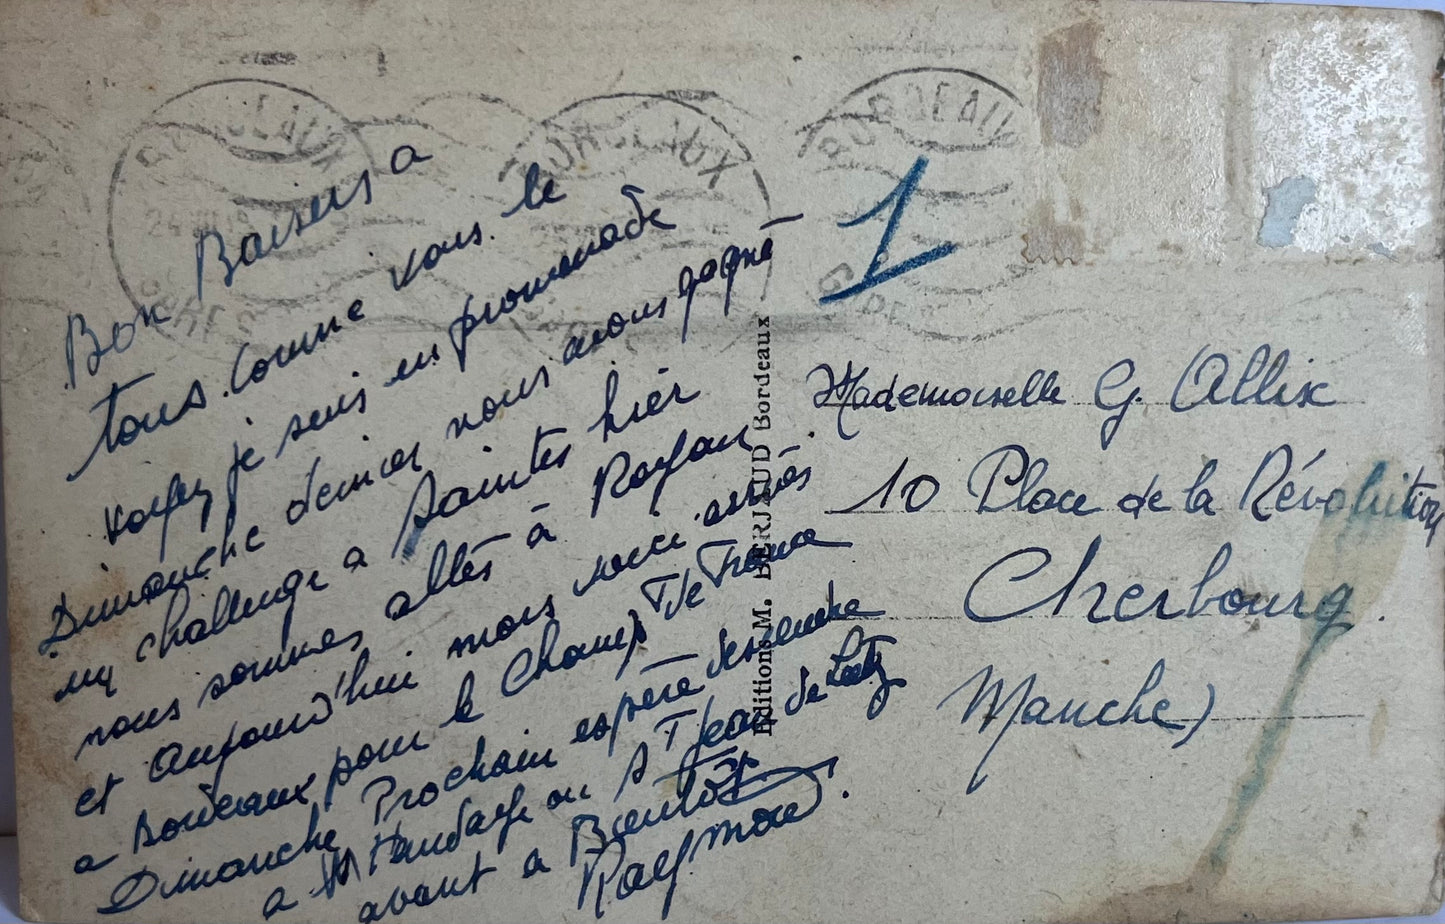 BORDEAUX
BORDEAUX
BORDEAUX
1
Bon Baisers a
tous. Comme vous. le
voyez je suis en promenade
Dimanche dernier nous avons gagné
un challenge a Saintes hier
nous sommes allés à Royan
et aujourd'hui nous arrivés
a Bordeaux pour le Champ T de France
Dimanche Prochain espère descendre
a Handaye ou S T Jean de
avant a Bientôt
Raymond.
Editions M. BERJAUD Bordeaux
Mademoiselle G. Allix
10 Place de la Révolution
Cherbourg.
Manche)